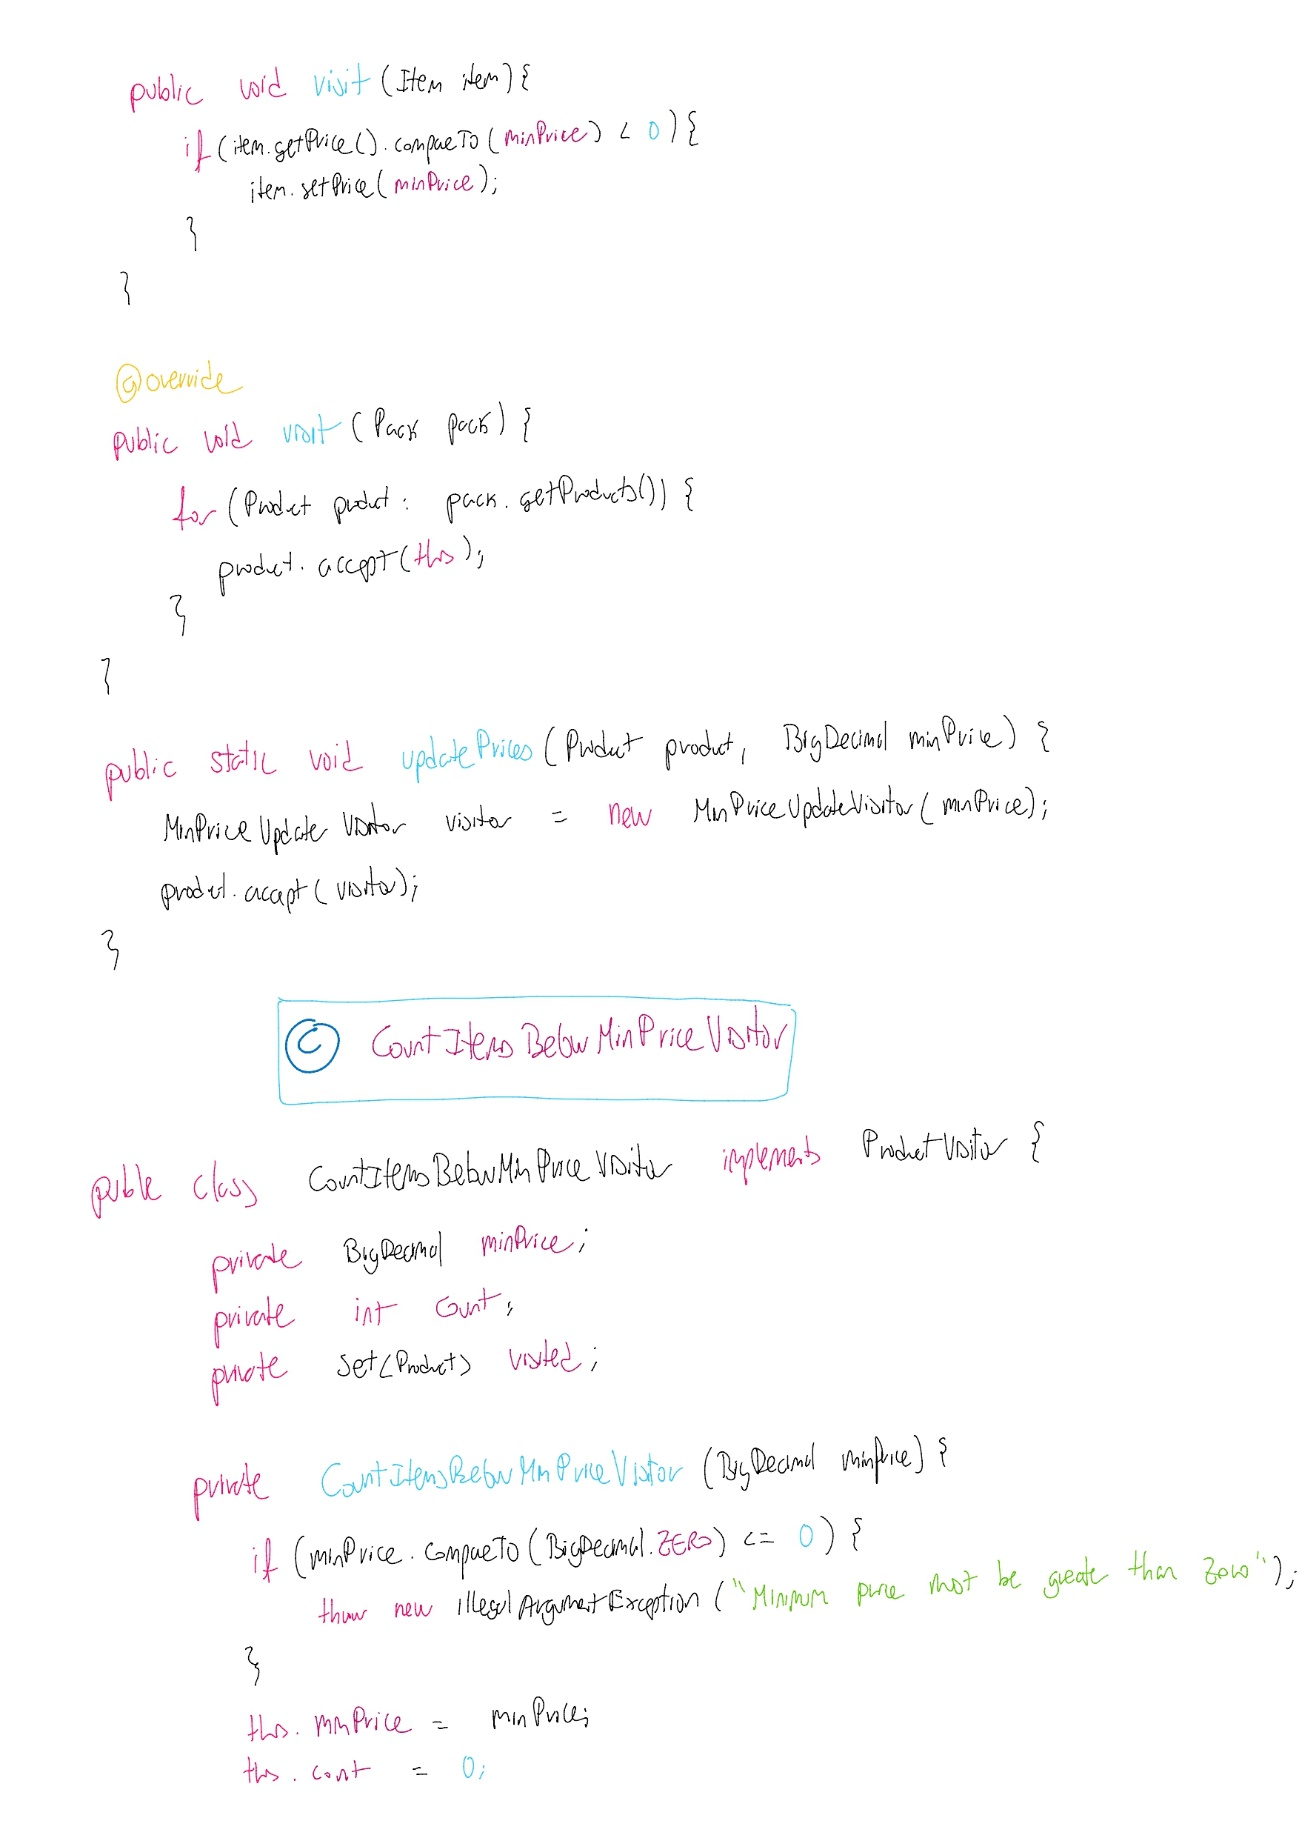 public void visit (Item item) {
if (item.getPrice().compareTo(minPrice) < 0) {
item.setPrice(minPrice);
}
}
@override
public void visit (Pack pack) {
for (Product product : pack.getProducts()) {
product.accept(this);
}
}
public static void updatePrices (Product product, BigDecimal minPrice) {
MinPriceUpdateVisitor visitor = new MinPriceUpdateVisitor(minPrice);
product.accept(visitor);
}
C CountItemsBelowMinPriceVisitor
public class CountItemsBelowMinPriceVisitor implements ProductVisitor {
private BigDecimal minPrice;
private int count;
private Set<Product> visited;
private CountItemsBelowMinPriceVisitor (BigDecimal minPrice) {
if (minPrice.compareTo(BigDecimal.ZERO) <= 0) {
throw new IllegalArgumentException ("Minimum price must be greater than zero");
}
this.minPrice = minPrice;
this.count = 0;